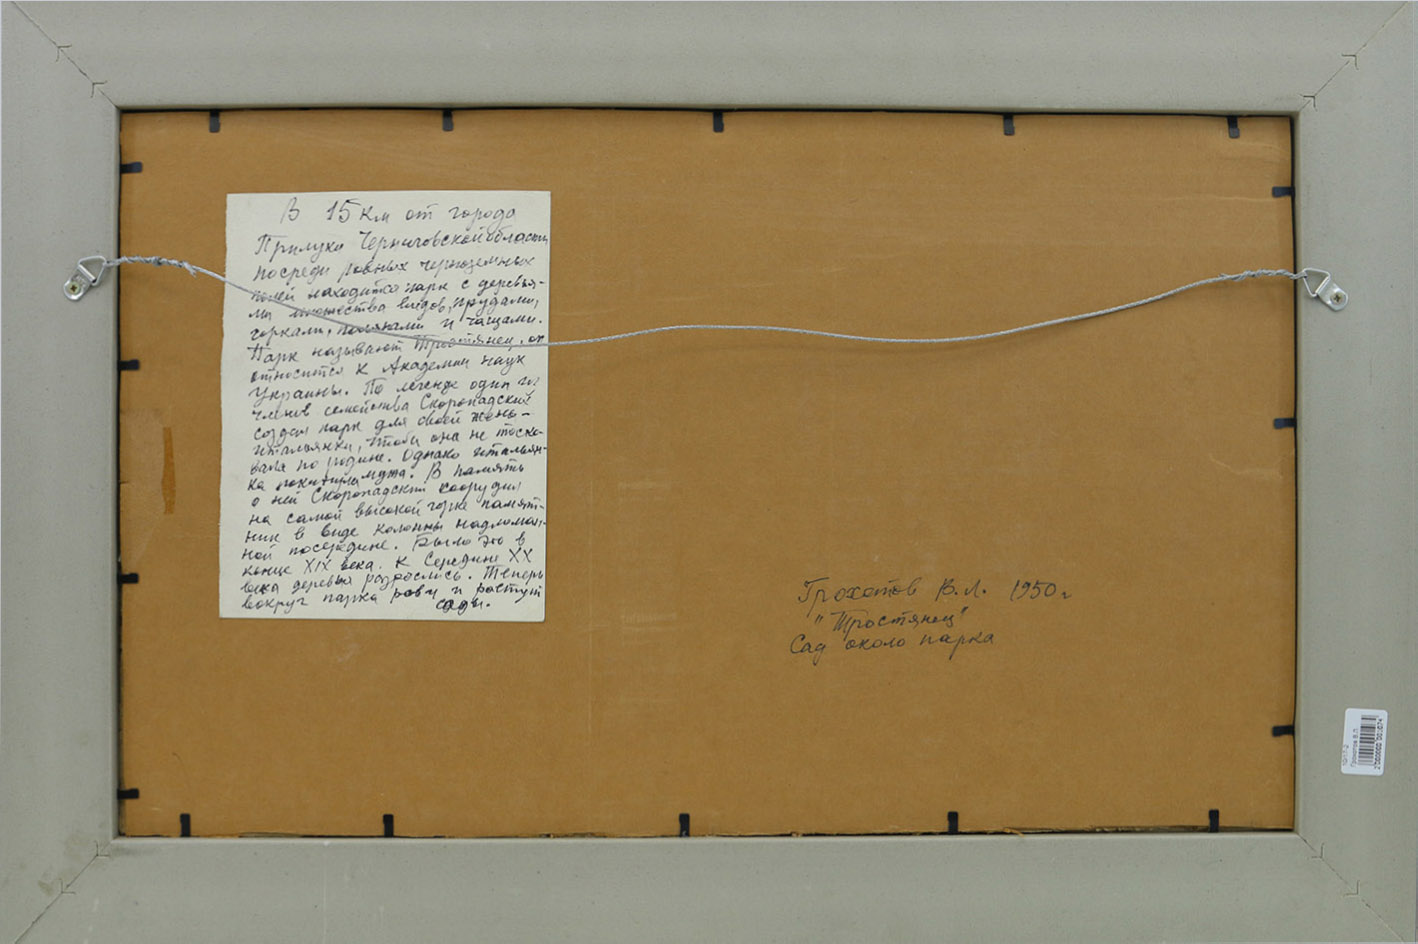 В 15 км от города
Прилуки Черниговской области
посреди ровных черноземных
полей находится парк с деревья-
ми множества видов, прудами,
горками, полянами и чащами.
Парк называют Тростянец, он
относится к Академии наук
Украины. По легенде один из
членов семейства Скоропадский
создал парк для своей жены-
итальянки, чтобы она не тоско-
вала по родине. Однако итальян-
ка покинула мужа. В память
о ней Скоропадский соорудил
на самой высокой горке памят-
ник в виде колонны надломан-
ной посередине. Было это в
конце XIX века. К середине XX
века деревья разрослись. Теперь
вокруг парка рвы и растут
сады.
Грохотов В.Л. 1950 г
"Тростянец"
Сад около парка
Грохотов В.Л.